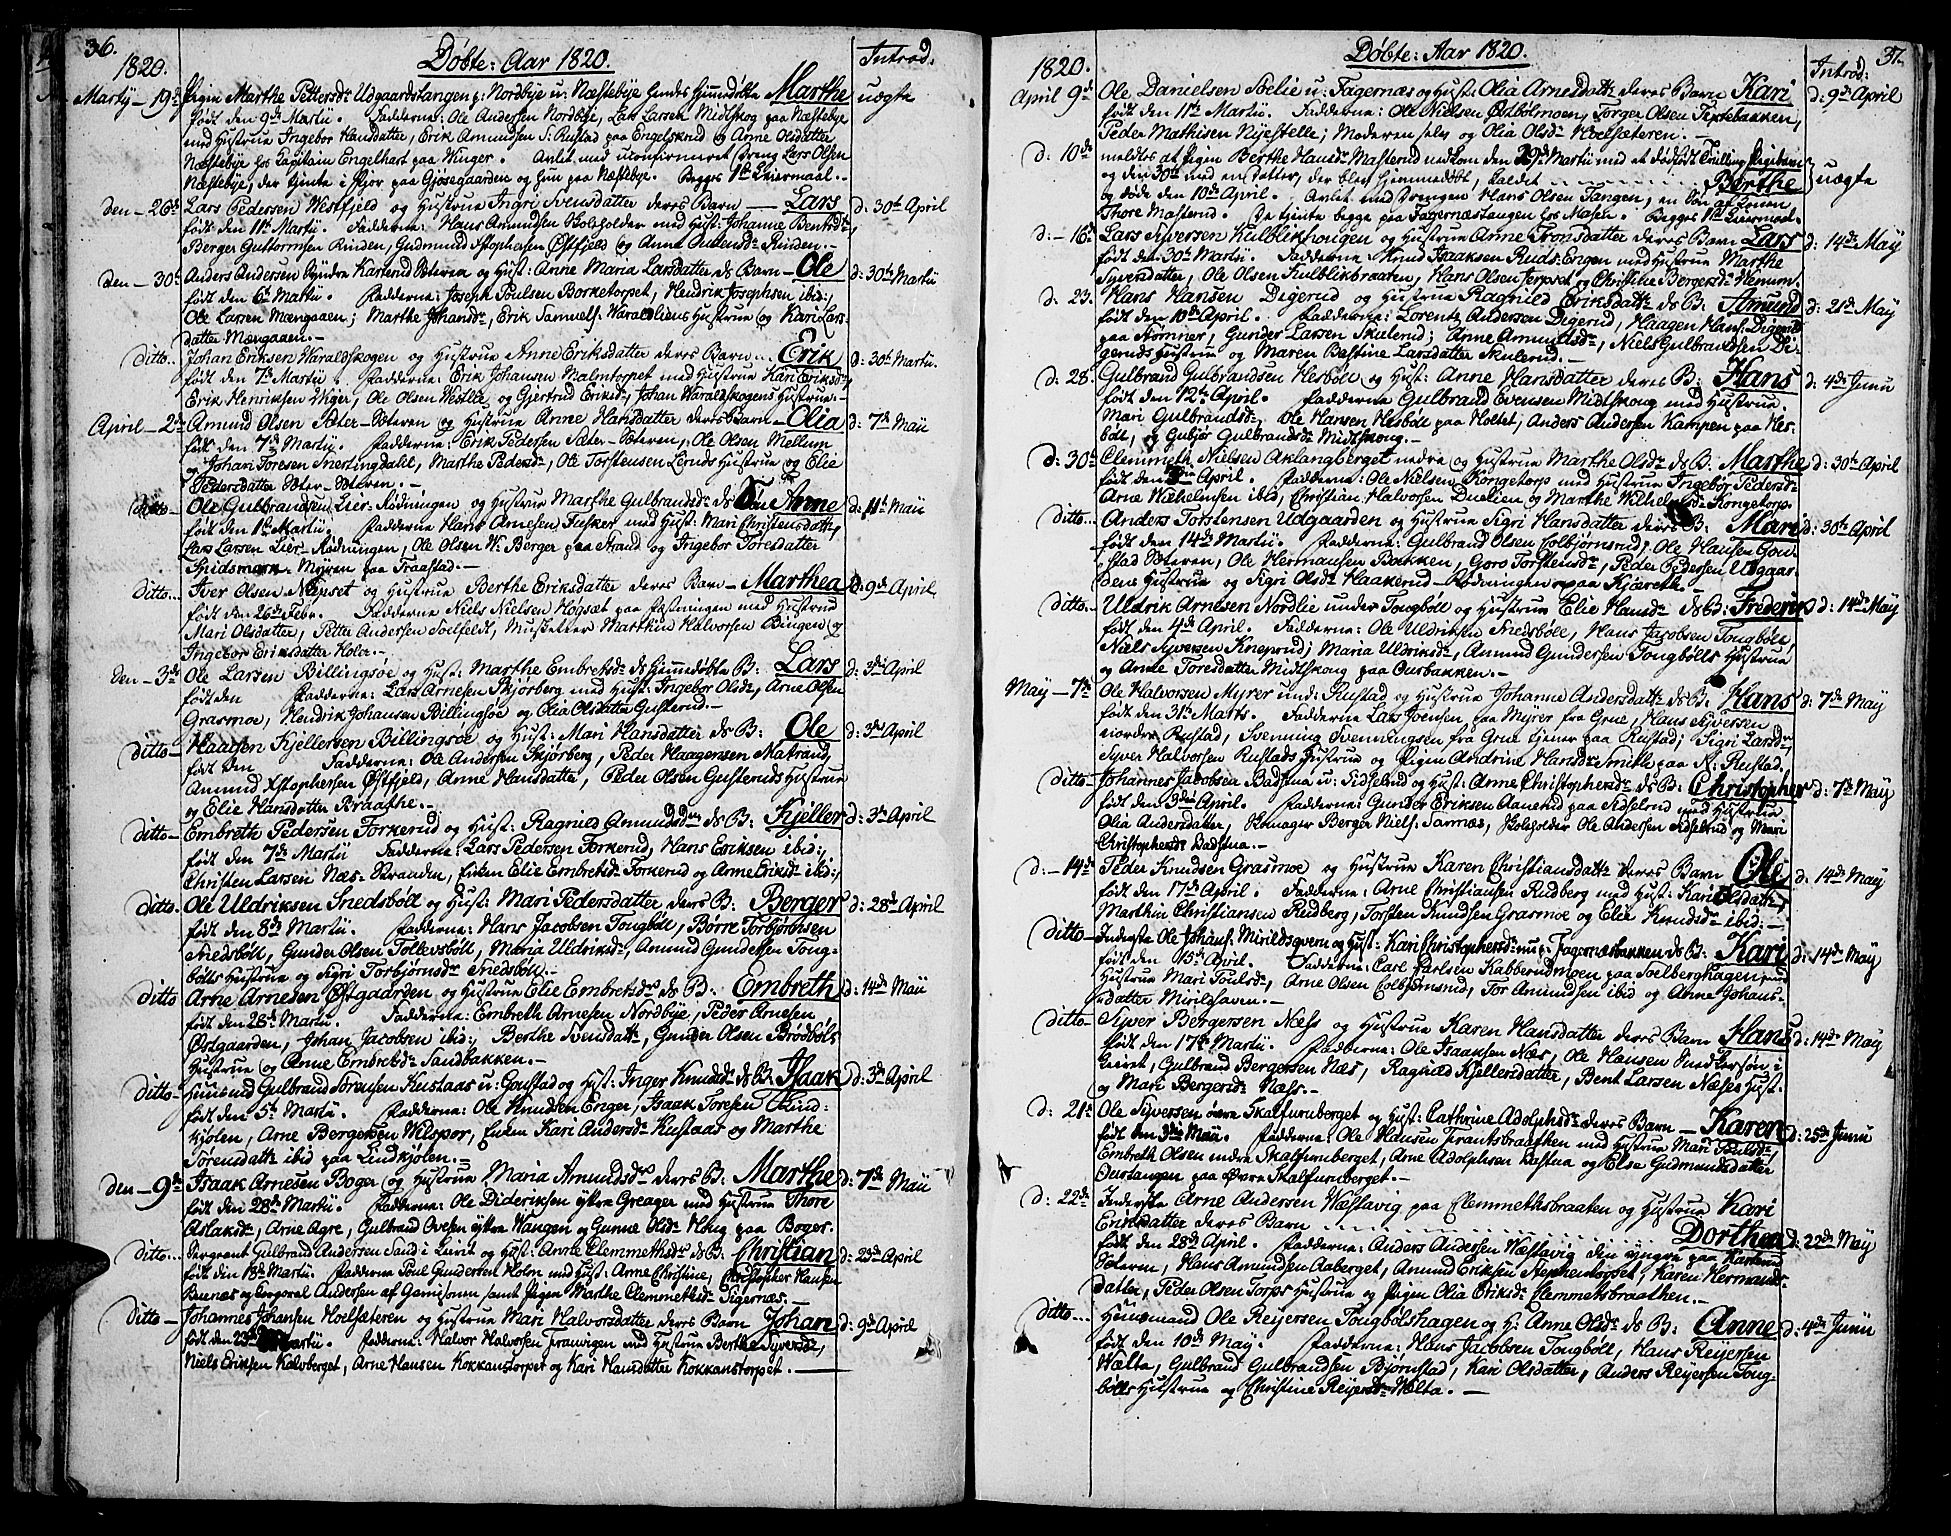 36.
1820.
Døbte: Aar 1820.
Introd.
Martÿ - 19de Pigen Marthe Pettersdr Udgaardstangen p: Nordbye u: Næstebye hendes Hiemdøbte Marthe uægte
født den 9de Martii. Fadderne: Ole Andersen Nordbye, Lars Larsen Midtskog paa Næstebye
med Hustrue Ingebor Hansdatter, Erik Amundsen S: Rustad paa Engelskrud og Anne Olsdatter
Næstebye hos Capitain Engelhart paa Winger. Avlet med uconfirmeret Dreng Lars Olsen
Næstebye, der tjente i Fjor paa Gjøsegaarden og hun paa Næstebye. Begges 1te Leiermaal.
den - 26de Lars Pedersen Westfjeld og Hustrue Ingri Svensdatter deres Barn - Lars d: 30te April
født den 11te Martii. Fadderne: Hans Amundsen Skoleholder med Hust: Johanne Bentsdr,
Berger Guttormsen Rinden, Gudmund Stophersen Østfjeld og Anne Rinden.
den - 30te Anders Andersen Øyndre Karterud Sæteren og Hust: Anne Maria Larsdatter ds Barn - Ole d: 30te Martii
født den 6te Martii. Fadderne: Joseph Poulsen Borketorpet, Hendrik Josephsen ibid:,
Ole Larsen Mængaaen; Marthe Johansdr, Erik Samuels: Waraldliens Hustrue og Kari Lars-
datter Mængaaen.
ditto.. Johan Eriksen Waraldskogen og Hustrue Anne Eriksdatter deres Barn... Erik d: 30te Martii.
født den 7de Martii. Fadderne: Erik Johansen Malmtorpet med Hustrue Kari Eriksdr,
Erik Henriksen Viger, Ole Olsen Westlie og Gjertrud Eriksdr, Johan Waraldskogens Hustrue.
April - 2de Amund Olsen Sæter-Sæteren og Hustrue Anne Hansdatter deres Barn - Olia d: 7de Maii
født den 7de Martÿ. Fadderne: Erik Pedersen Sæter-Sæteren, Ole Olsen Mellum
og Johan Toresen Snestingdalil, Marthe Pedersdr, Ole Torstensen Hustrue og Elie
Pedersdatter Sæter-Sæteren.
ditto - Ole Gulbrandsen Lier-Rødningen og Hustrue Marthe Gulbrandsdr ds Anne d: 11te Maii
født den 1te Martii. Fadderne Hans Arnesen Fusker med Hust: Mari Christensdatter,
Lars Larsen Lier-Rødningen, Ole Olsen W: Berger paa Strand og Ingebor Toresdatter
Spidsmark-Myren paa Traastad.
ditto... Iver Olsen Næpset og Hustrue Berthe Eriksdatter deres Barn - Marthea d: 9de April
født den 26de Febr. Fadderne Niels Nielsen Høgsæt paa Fæstningen med Hustrue
Mari Olsdatter, Petter Andersen Soelfeldt, Musketeer Marthin Halvorsen Bingen og
Ingebor Eriksdatter Holer.
den - 3de Ole Larsen Billingsøe og Hust: Marthe Embretsdr ds Hiemmedøbte B: Lars d: 3die April
født den Fadderne: Lars Arnesen Skjørberg med Hust: Ingebor Olsdr, Arne Olsen
Grasmoe, Hendrik Johansen Billingsøe og Olia Olsdatter Gusterud.
ditto - Haagen Kjellersen Billingsøe og Hust: Mari Hansdatter ds B: Ole d: 3die April
født den Fadderne: Ole Andersen Skjørberg, Peder Haagensen Matrand,
Amund Xstophersen Østfjeld, Anne Hansdatter, Peder Olsen Gusteruds Hustrue
og Elie Hansdatter Braathe.
ditto - Embreth Pedersen Torkerud og Hust: Ragnild Amundsdr ds B: Kjeller d: 3die April
født den 7de Martii Fadderne: Lars Pedersen Torkerud, Hans Eriksen ibid:,
Christen Larsen Næs-Branden, Enken Elie Embretsdr Torkerud og Anne Eriksdr ibid:,
ditto. Ole Uldriksen Snedsbøl og Hust: Mari Pedersdatter deres B: Berger d: 28de April
født den 8de Martii. Fadderne: Hans Jacobsen Tongbøll, Børre Torbjørnsen
Snedsbøl, Gunder Olsen Tollevsbøll, Maria Uldriksdr, Amund Gundersen Tong-
bølls Hustrue og Sigri Torbjørnsdr Snedsbøl.
ditto Arne Arnesen Østgaarden og Hustrue Elie Embretsdr ds B: Embreth d: 14de Maii
født den 28de Martii. Fadderne: Embreth Arnesen Nordbye, Peder Arnesen
Østgaarden, Johan Jacobsen ibid:, Berthe Svensdatt, Gunder Olsen Brødbøls
Hustrue og Anne Embretsdr Sandbakken.
ditto - Huusmd Gulbrand Sørensen Rustaas u: Goustad og Hust: Inger Knudsdr ds B: Isaak d: 3die April
født den 5te Martii. Fadderne: Ole Knudsen Enger, Isaak Toresen Lind-
kjølen, Arne Bergersen Wilspor, Enken Kari Andersdr Rustaas og Marthe
Sørensdatt ibid paa Lindkjølen.
den - 9de Isaak Arnesen Boger og Hustrue Maria Amundsdr deres B: Marthe d: 7de Maii
født den 28de Martii. Fadderne: Ole Dideriksen ÿttre Greager med Hustrue Thore
Aslaksdr, Arne Agre, Gulbrand Ovesen ÿttre Wangen og Gunne Olsdr Houg paa Boger.
ditto... Sergeant Gulbrand Andersen Sand i Leiret og Hust: Anne Clemmetsdr ds B: Christian d: 23de April
født den 13de Martii. Fadderne Poul Gundersen Holm med Hust: Anne Christine, Christopher Hansen
Buenæs og Corporal Andersen af Garnisonen samt Pigen Marthe Clemmethsdr Tigernæs.
ditto - Johannes Johansen Hoelseteren og Hustrue Mari Halvorsdatter deres Barn Johan d: 9de April
født den 23de Martii. Fadderne: Halvor Halvorsen Tranvigen med Hustrue Berthe Syversdr,
Niels Eriksen Kalvberget, Arne Hansen Kokkanstorpet og Kari Hansdatter Kokkanstorpet.
37.
1820.
Døbte: Aar 1820.
Introd:
April 9de Ole Danielsen Sælie u: Fagernæs og Hust: Olia Arnesdatt deres Barn Kari d: 9de April
født den 11te Martii. Fadderne: Ole Nielsen Østbølmoen, Torger Olsen Texebakken,
Peder Mathisen Nyestelle; Moderen selv og Olia Olsdr Hoelseteren.
d: 10de meldtes at Pigen Berthe Hansdr Masterud nedkom den 29de Martii med et dødfødt Tvilling Pigebarn
og den 30te med en datter, der blev hjemmedøbt, kaldet ... Berthe uægte
og døde den 10de April. Avlet med Drengen Hans Olsen Tangen, en Søn af
Thore Masterud. De tjente begge paa Fagernæstangen hos Masen. Begges 1te Leiermaal.
d: - 16de Lars Syversen Kulblikhougen og Hustrue Anne Tronsdatter deres Barn Lars d: 14de May
født den 30te Martii. Fadderne: Knud Isaaksen Ruds-Engen med Hustrue Marthe
Syversdatter, Ole Olsen Kulblikbraaten, Hans Olsen Jerpset og Christine Bergersdr Nemum.
d: 23. Hans Hansen Digerud og Hustrue Ragnild Eriksdatt ds B: Amund d: 21de May
født den 10de April. Fadderne: Lorentz Andersen Digerud, Haagen Hans: Digerud
paa Stomner, Gunder Larsen Skulerud; Anne Amundsdr, Niels Gulbrandsen Di-
geruds Hustrue og Maren Bestine Larsdatter Skulerud.
d: 28. Gulbrand Gulbrandsen Hesbøll og Hust: Anne Hansdatter deres B: Hans d: 4de Junii
født den 12te April. Fadderne Gulbrand Evensen Midtskong med Hustrue
Mari Gulbrandsdr, Ole Hansen Hesbøll paa Holtet, Anders Andersen Kampen paa Hes-
bøll, og Gubjør Gulbrandsdr Midtskong.
d: 30te Clemmeth Nielsen Aklangberget nedre og Hustrue Marthe Olsdr ds B: Marthe d: 30te April
født den April. Fadderne: Ole Nielsen Kongetorp med Hustrue Ingebor Pedersdr
Arne Wilhelmsen ibid, Christian Halvorsen Duelien og Marthe Wilhelmsdr Kongetorp.
ditto... Anders Torstensen Udgaarden og Hustrue Sigri Hansdatter deres B: Mari d: 30te April
født den 14de Martii. Fadderne: Gulbrand Olsen Colbjørnsrud, Ole Hansen Gou-
stad Sæteren, Ole Hermansen Bakken, Goro Torstensdr, Peder Pedersen Udgaar-
dens Hustrue og Sigri Olsdr Haakerud-Rødningen paa Kjærreth.
ditto - Uldrik Arnesen Nordlie under Tongbøll og Hustrue Elie Hansdr ds B: Frederik d: 14de May
født den 4de April. Fadderne: Ole Uldriksen Snedsbøle, Hans Jacobsen Tongbøll,
Niels Syversen Kneprud; Maria Uldriksdr, Amund Gundersen Tongbølls Hustrue
og Anne Toresdatter Midtskong paa Ourbakken.
May - 7de Ole Halvorsen Myrer und: Rustad og Hustrue Johanne Andersdatt ds B: Hans d: 7de May
født den 31te Marts. Fadderne Lars Ivensen paa Myrer fra Grue, Hans Syversen
nordre Rustad, Svenning Svenningsen fra Grue tjener paa Rustad; Sigri Larsdr,
Syver Halvorsen Rustads Hustrue og Pigen Andrine Hansdr Smitke paa N: Rustad.
ditto - Johannes Jacobsen Badstua u: Sidselrud og Hust: Anne Christophersdr ds B: Christopher d: 7de May
født den 3die April. Fadderne: Gunder Eriksen Aanerud paa Sidselrud med Hustrue
Olia Andersdatter, Skomager Berger Niels: Sarnæs, Skoleholder Ole Andersen Sidselrud og Mari
Christophersdr Badstua.
d: - 14de Peder Knudsen Grasmoe og Hustrue Karen Christiansdatt deres Barn Ole d: 14de May
født den 17de April. Fadderne: Arne Christiansen Rudberg med Hust: Kari Olsdatt,
Marthin Christiansen Rudberg, Torsten Knudsen Grasmoe og Elie Knudsdr ibid:
ditto - Inderste Ole Johans: Mirildsqvern og Hust: Kari Christophersdr nu p: Fagernæsbakken ds B: Kari d: 14de May
født den 15de April. Fadderne: Carl Carlsen Kabberudmoen paa Soelberghagen med
Hustrue Mari Poulsdr, Arne Olsen Colbjørnsrud, Tor Amundsen ibid og Anne Johans-
datter Mirildhaven.
ditto - Syver Bergersen Næss og Hustrue Karen Hansdatter deres Barn Hans d: 14de May
født den 17de Martii. Fadderne: Ole Isaaksen Næs, Ole Hansen
Leiret, Gulbrand Bergersen Næs, Ragnild Kjellersdatter, Bent Larsen Næses Hust:
og Mari Bergersdr Næss.
d: 21de Ole Syversen øvre Skalfurnberget og Hust: Cathrine Adolphsdr deres Barn - Karen d: 25de Junii
født den 3die Maii. Fadderne: Ole Hansen Frantsbraathen med Hustrue Mari Poulsdr,
Embreth Olsen nedre Skalfurnberget, Arne Adolphsen Lastua og Else Gudmundsdatter
Ourstangen paa Øvre Skalfurnberget.
d: 22de Inderste Arne Andersen Wæstavig paa Clemmethsbraaten og Hustrue Kari
Eriksdatter deres Barn ... Dorthea d: 22de May
født den 28de April. Fadderne: Anders Andersen Wæstavig den yngre paa Karterud
Sæteren, Hans Amundsen Aaberget, Amund Eriksen Stephenstorpet, Karen Hermans-
datter, Peder Olsen Torps Hustrue og Pigen Olia Eriksdr Clemmetsbraathen.
ditto... Huusmand Ole Reijersen Tongbølshagen og H: Anne Olsdr ds B: Anne d: 4de Junii
født den 10de May. Fadderne: Hans Jacobsen Tongbøll, Hans Reijersen
Wælta, Gulbrand Gulbrandsen Bjørnstad, Kari Olsdatter, Anders Reijersen Tong-
bølls Hustrue og Christine Reijersdr Wælta.